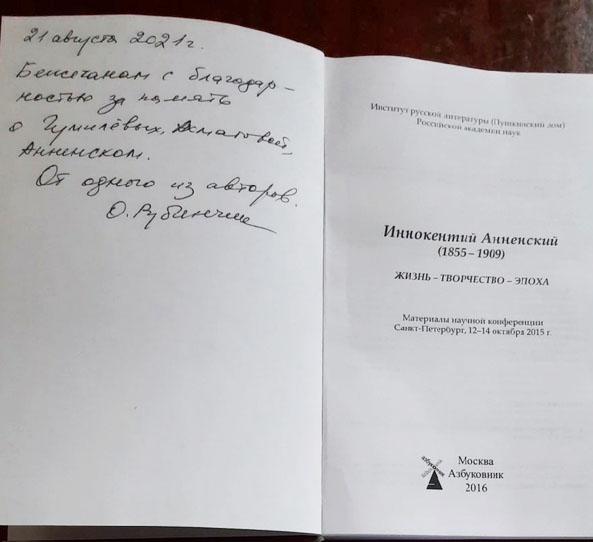 21 августа 2021 г.
Бежечанам с благодар-
ностью за память
о Гумилёвых, Ахматовой,
Анненском.
От одного из авторов.
О. Рубинчик
Институт русской литературы (Пушкинский дом)
Российской академии наук
Иннокентий Анненский
(1855 – 1909)
ЖИЗНЬ – ТВОРЧЕСТВО – ЭПОХА
Материалы научной конференции
Санкт-Петербург, 12–14 октября 2015 г.
азбуковник
Москва
Азбуковник
2016